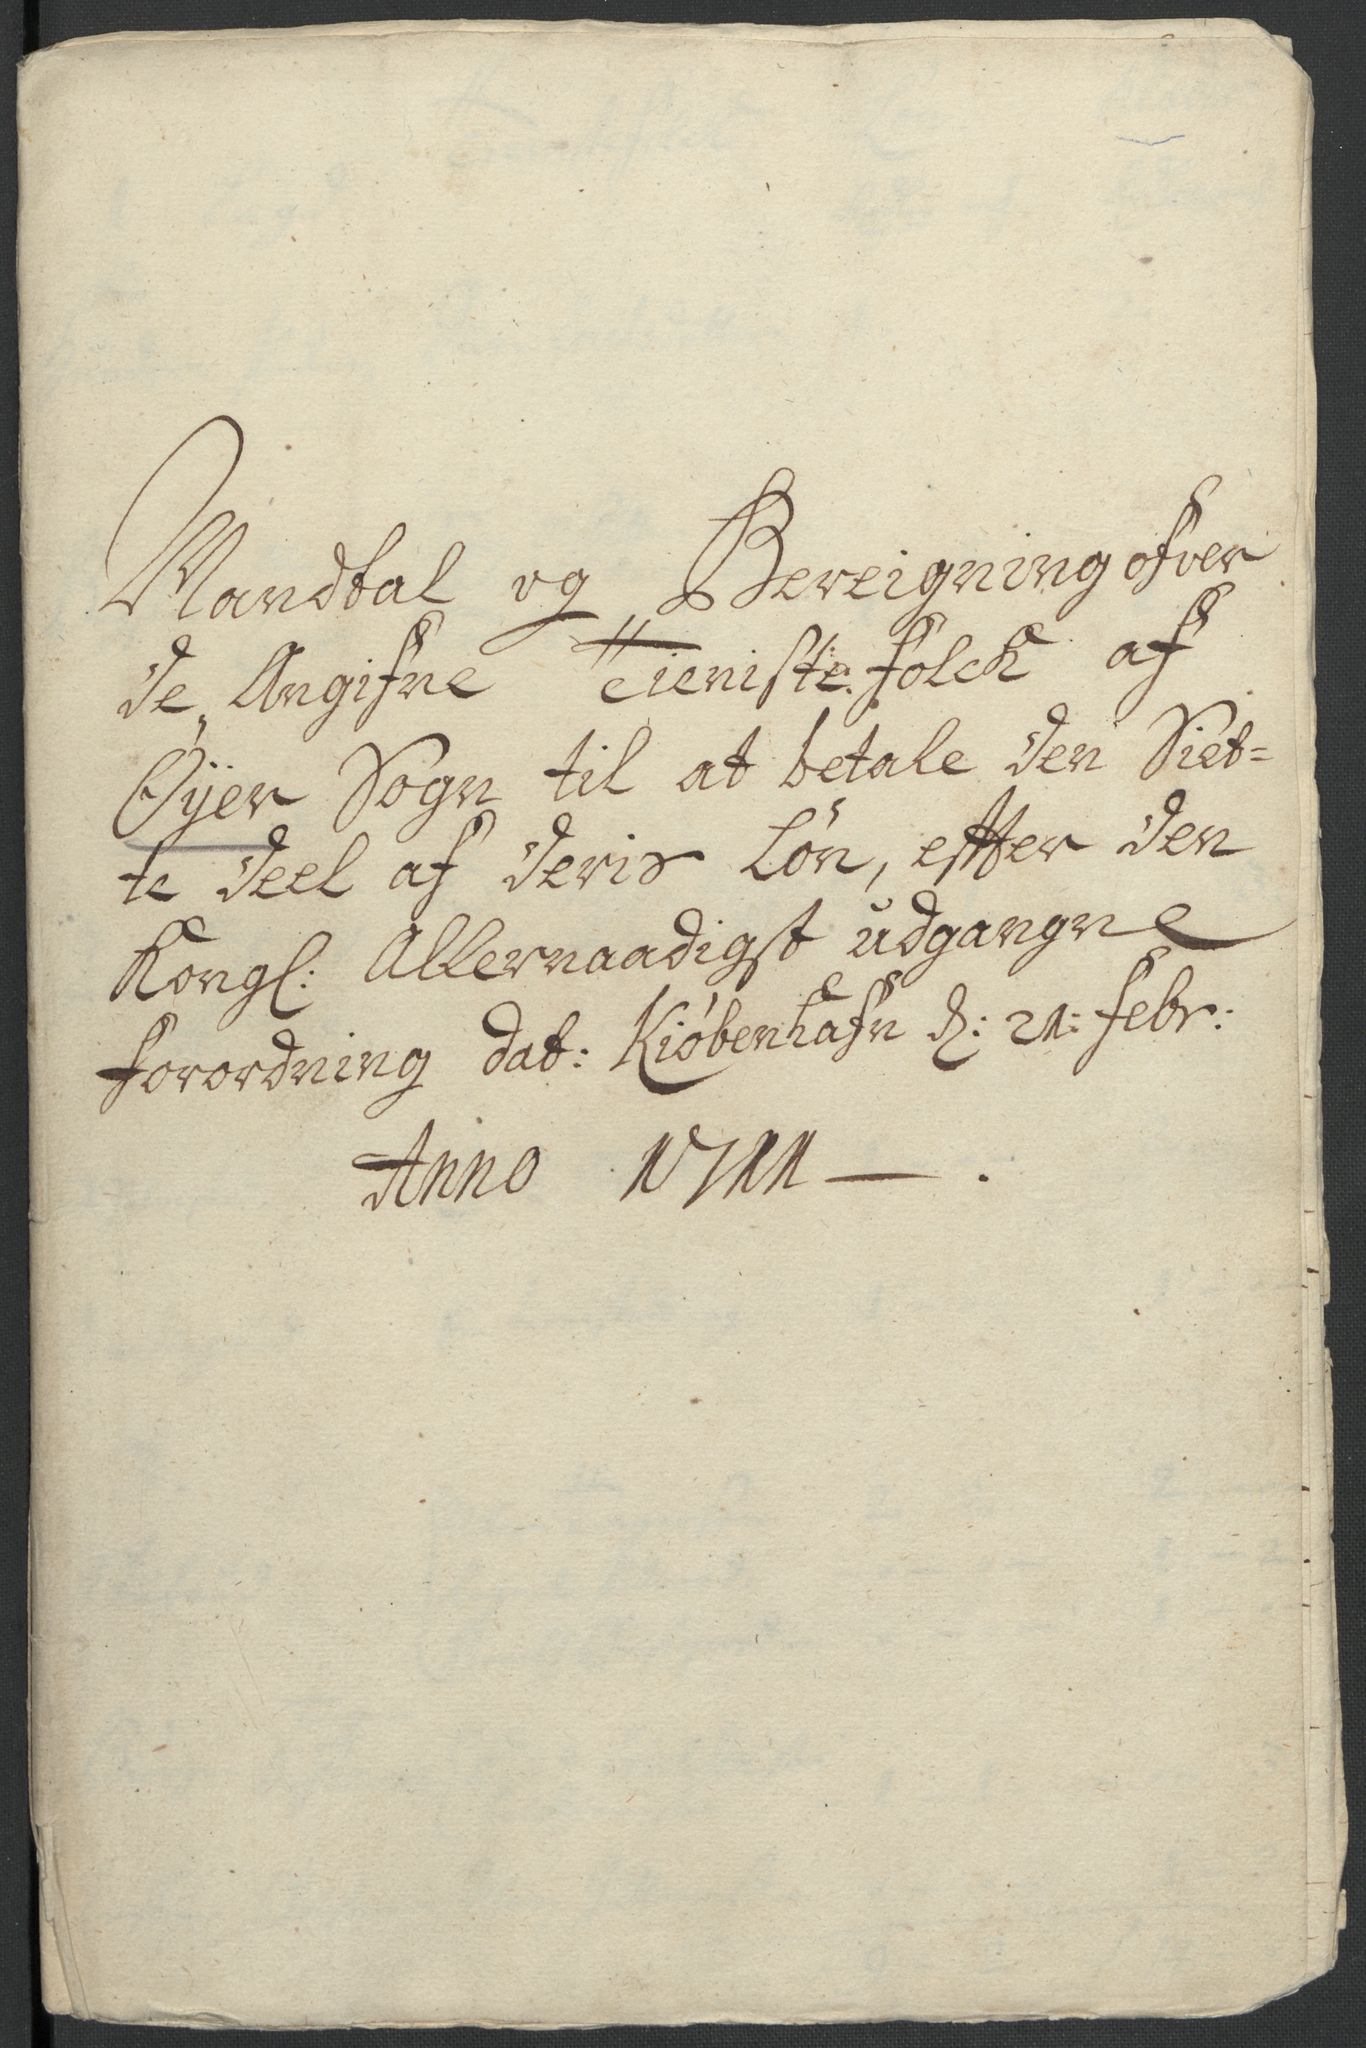 Mandtal og Bereigning ofver
de Angifne Tieniste folck af
Øyer Sogn til at betale den Siet=
te deel af deris Lön, effter den
Kongl: Allernaadigst udgangne
forordning dat: Kiöbenhafn d: 21: febr:
Anno 1711 — .